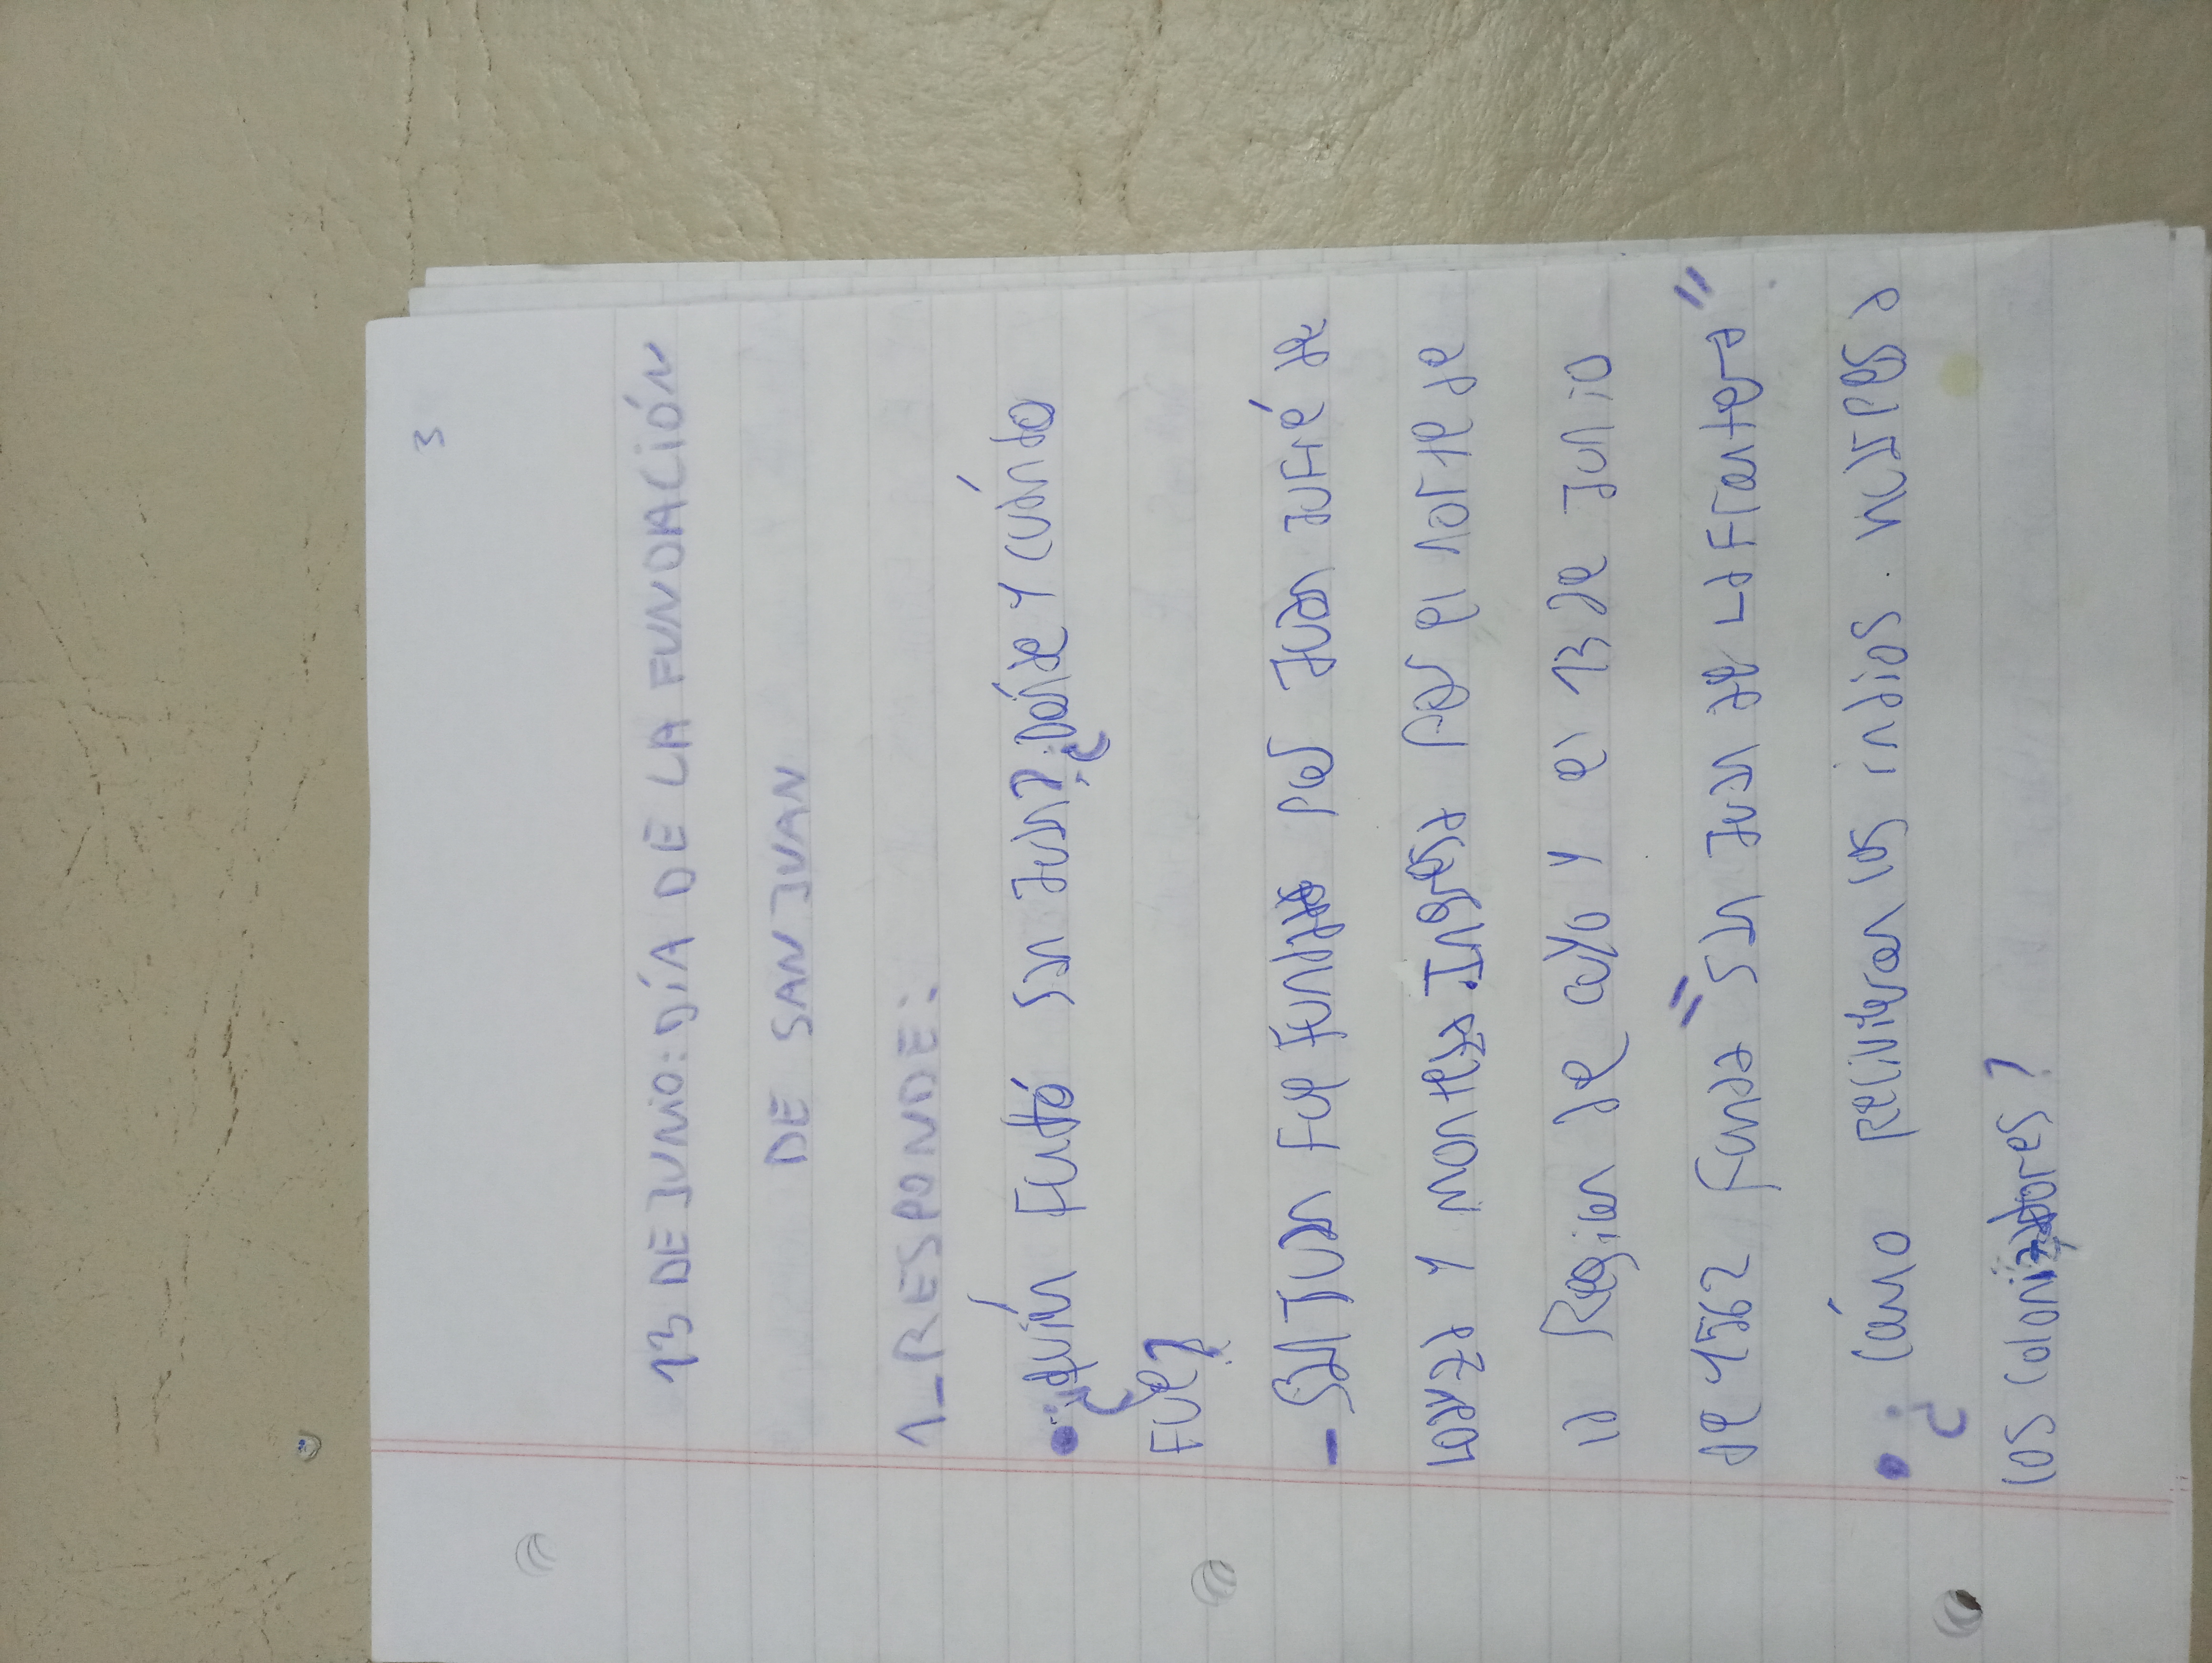 3
13 DE JUNIO: DÍA DE LA FUNDACIÓN
DE SAN JUAN
1_RESPONDE:
• ¿Quién Fundó san Juan? ¿Dónde Y cuándo
FUe?
- San Juan Fue Fundada por Juan Jufré de
Loayza Y montesa Ingresa por el norte de
la Region de cuyo Y el 13 de Junio
de 1562 Funda "San Juan de La Frontera"
• ¿Cómo Recivieron los indios Huarpes a
los Colonizadores?